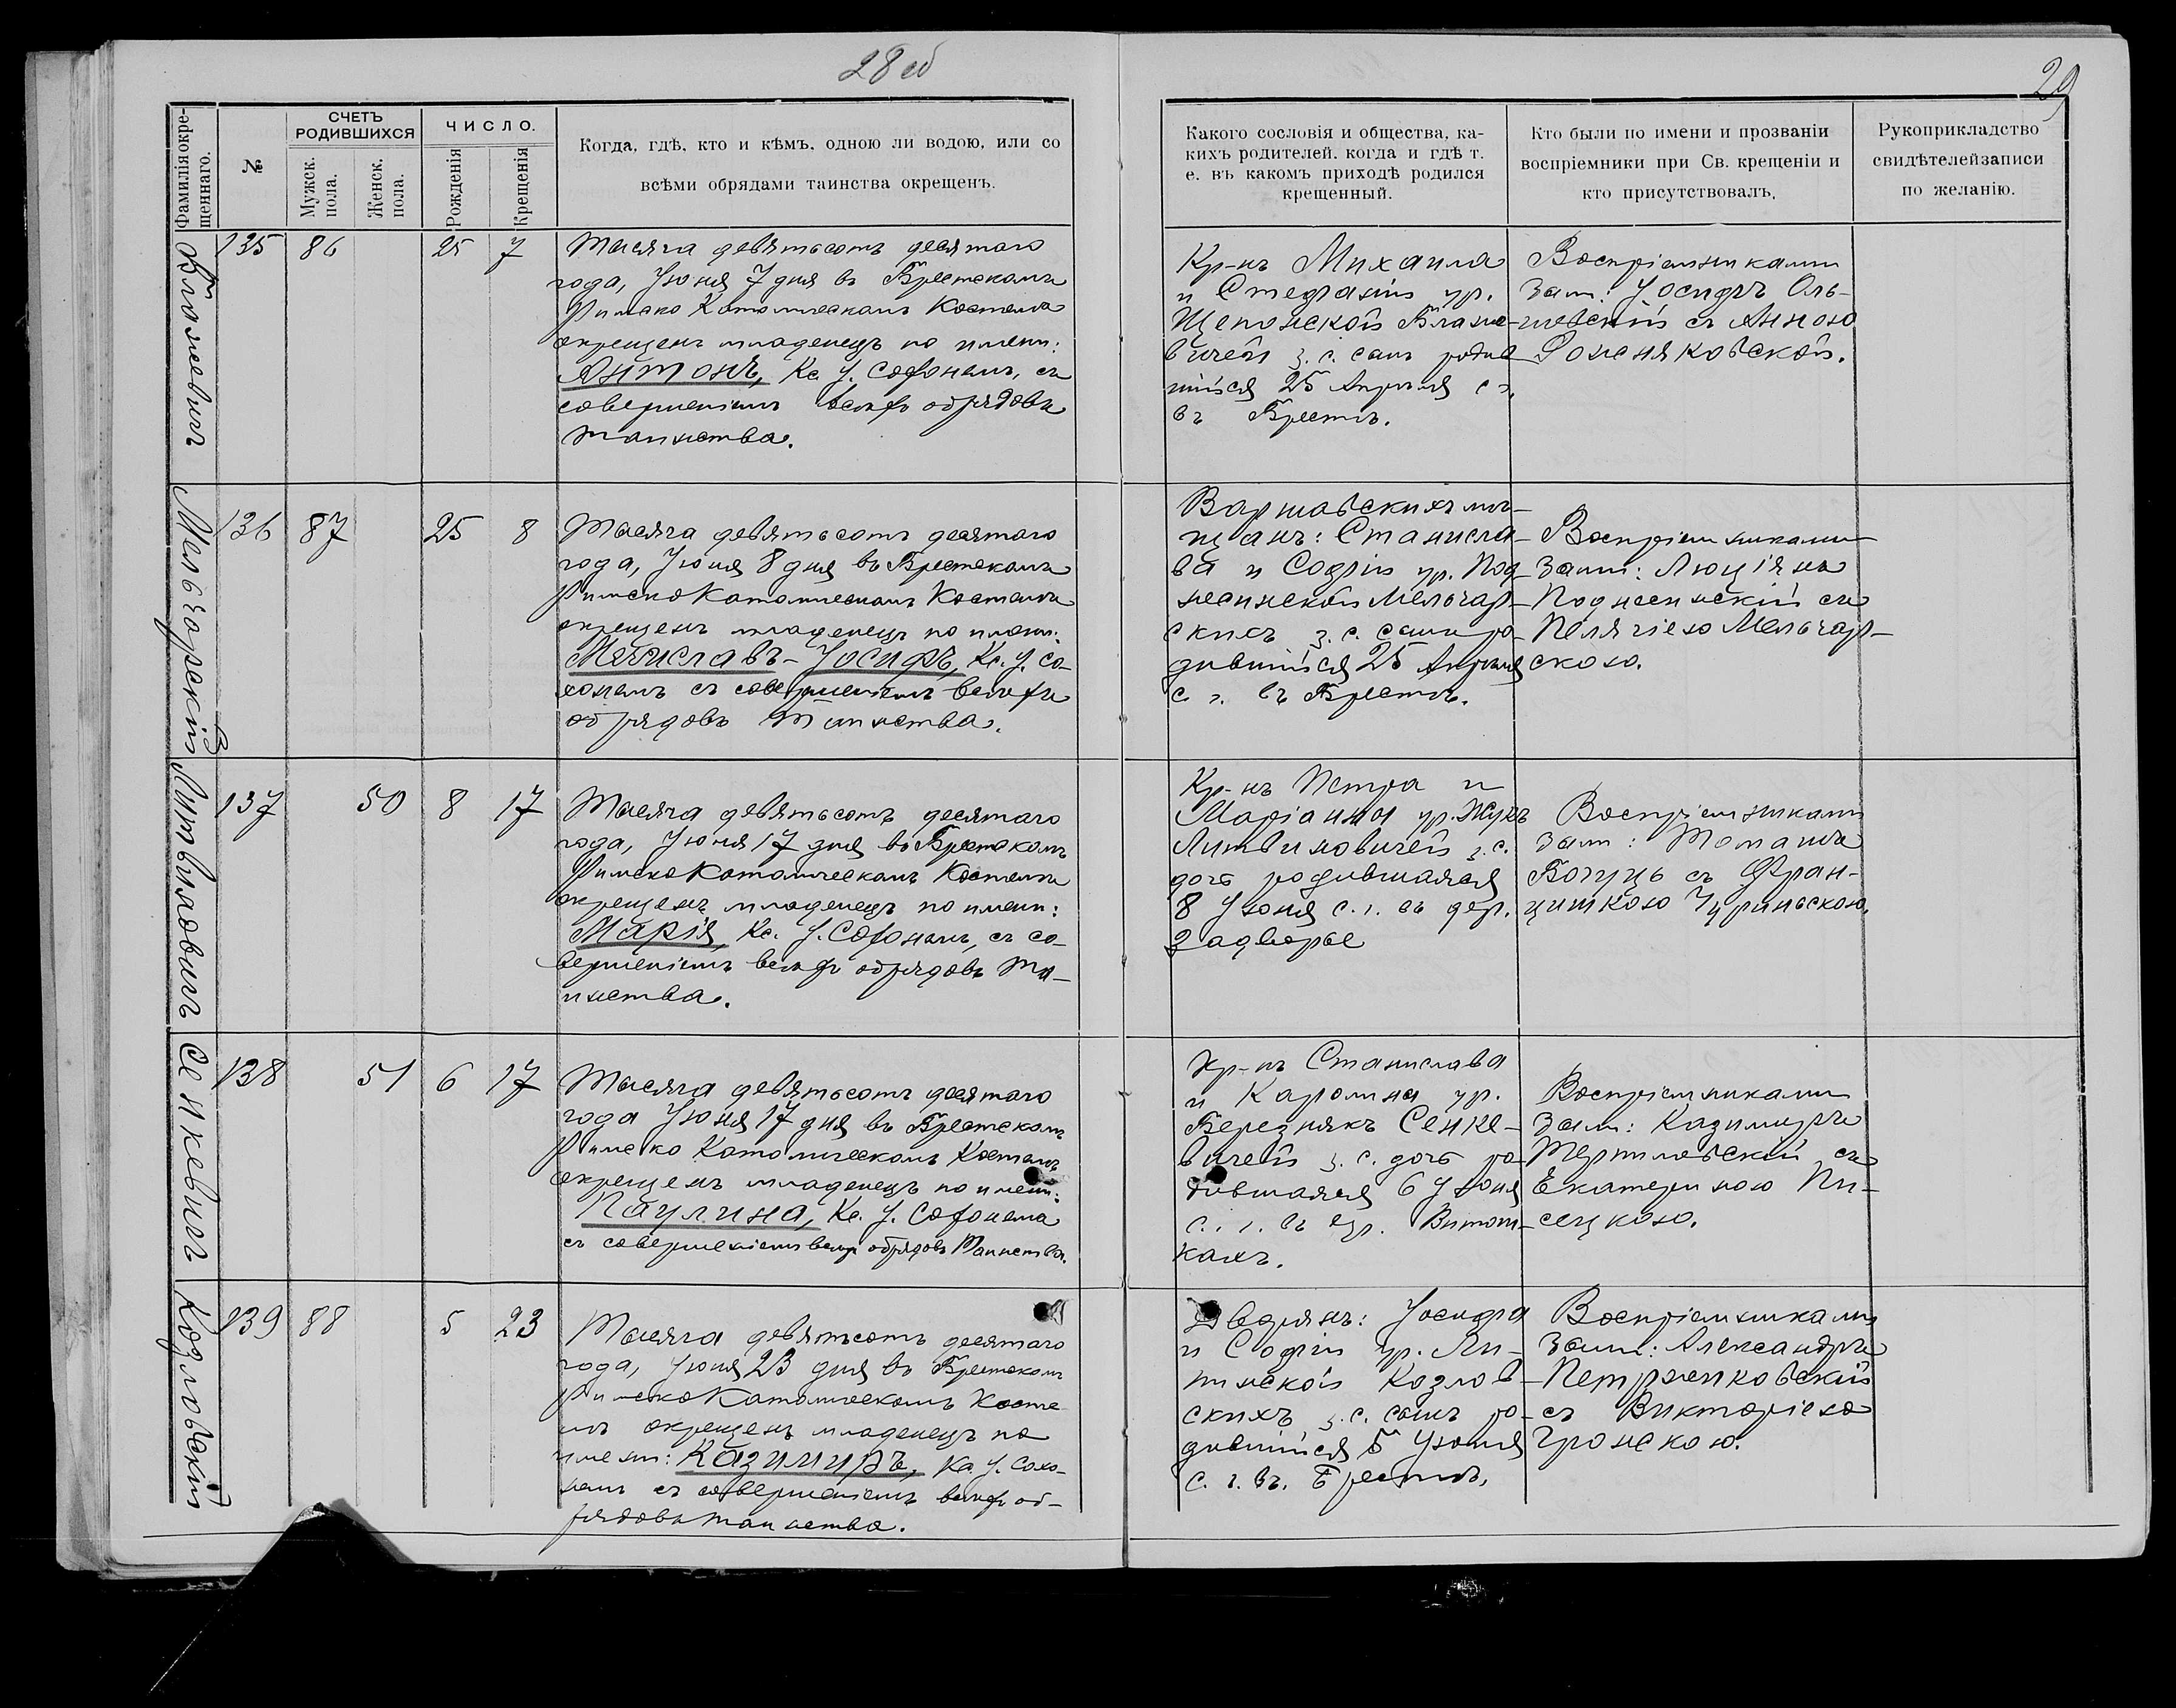 28 об
29
Фамилія окре-
щеннаго.
№
СЧЕТЪ
РОДИВШИХСЯ
Мужск.
пола.
Женск.
пола.
ЧИСЛО.
Рожденія
Крещенія
Когда, гдѣ, кто и кѣмъ, одною ли водою, или со
всѣми обрядами таинства окрещенъ.
Какого сословія и общества, ка-
кихъ родителей, когда и гдѣ т.
е. въ какомъ приходѣ родился
крещенный.
Кто были по имени и прозваніи
воспріемники при Св. крещеніи и
кто присутствовалъ.
Рукоприкладство
свидѣтелей записи
по желанію.
135 86 25 7
Тысяча девятьсотъ десятаго
года, Іюня 7 дня въ Брестскомъ
Римско Католическомъ Костелѣ
окрещенъ младенецъ по имени:
Антонъ, Кс. І. , съ
совершеніемъ всѣхъ обрядовъ
таинства.
Кр-нъ Михаила
и Стефаніи ур.
Щепонской Влаже-
вичей з. с. сынъ родив
шійся 25 Апрѣля с г.
въ Брестѣ.
Воспріемниками
были: Іосифъ Оль-
шевскій съ Анною

Мельчарскій
136 87 25 8
Тысяча девятьсотъ десятаго
года, Іюня 8 дня въ Брестскомъ
Римско Католическомъ Костелѣ
окрещенъ младенецъ по имени:
Мечиславъ-Іосифъ, Кс. І. Со-
съ совершеніемъ всѣхъ
обрядовъ таинства.
Варшавскихъ мѣ-
щанъ: Станисла-
ва и Софіи ур. Под-
несинской Мельчар-
скихъ з. с. сынъ ро-
дившійся 25 Апрѣля
с. г. въ Брестѣ.
Воспріемниками
были: Люціянъ
Поднесинскій съ
Пелягіею Мельчар-
скою.
Литвиновичъ
137 50 8 17
Тысяча девятьсотъ десятаго
года, Іюня 17 дня въ Брестскомъ
Римско Католическомъ Костелѣ
окрещенъ младенецъ по имени:
Марія, Кс. І. , съ со-
вершеніемъ всѣхъ обрядовъ та-
инства.
Кр-нъ Петра и
Маріанны ур. Жукъ
Литвиновичей з. с.
дочь родившаяся
8 Іюня с. г. въ дер.
Задворье
Воспріемниками
были: Томашъ
съ Фран-
цишкою
Сенкевичъ
138 51 6 17
Тысяча девятьсотъ десятаго
года Іюня 17 дня въ Брестскомъ
Римско Католическомъ Костелѣ
окрещенъ младенецъ по имени:
Паулина, Кс. І.
съ совершеніемъ всѣхъ обрядовъ Таинства.
Кр-нъ Станислава
и Каролины ур.
Березнякъ Сенке-
вичей з. с. дочь ро-
дившаяся 6 Іюня
с. г. въ ур.
Воспріемниками
были: Казимиръ
съ
Екатериною Пи-
сецкою.
Козловскій
139 88 5 23
Тысяча девятьсотъ десятаго
года, Іюня 23 дня въ Брестскомъ
Римско Католическомъ Косте
лѣ окрещенъ младенецъ по
имени: Казимиръ, Кс. І. Сохо-
съ совершеніемъ всѣхъ об-
рядовъ таинства.
Дворянъ: Іосифа
и Софіи ур. Ли-
пинской Козлов-
скихъ з. с. сынъ ро-
дившійся 5 Іюня
с. г. въ. Брестѣ,
Воспріемниками
были: Александръ

съ Викторіею
Гронскою.